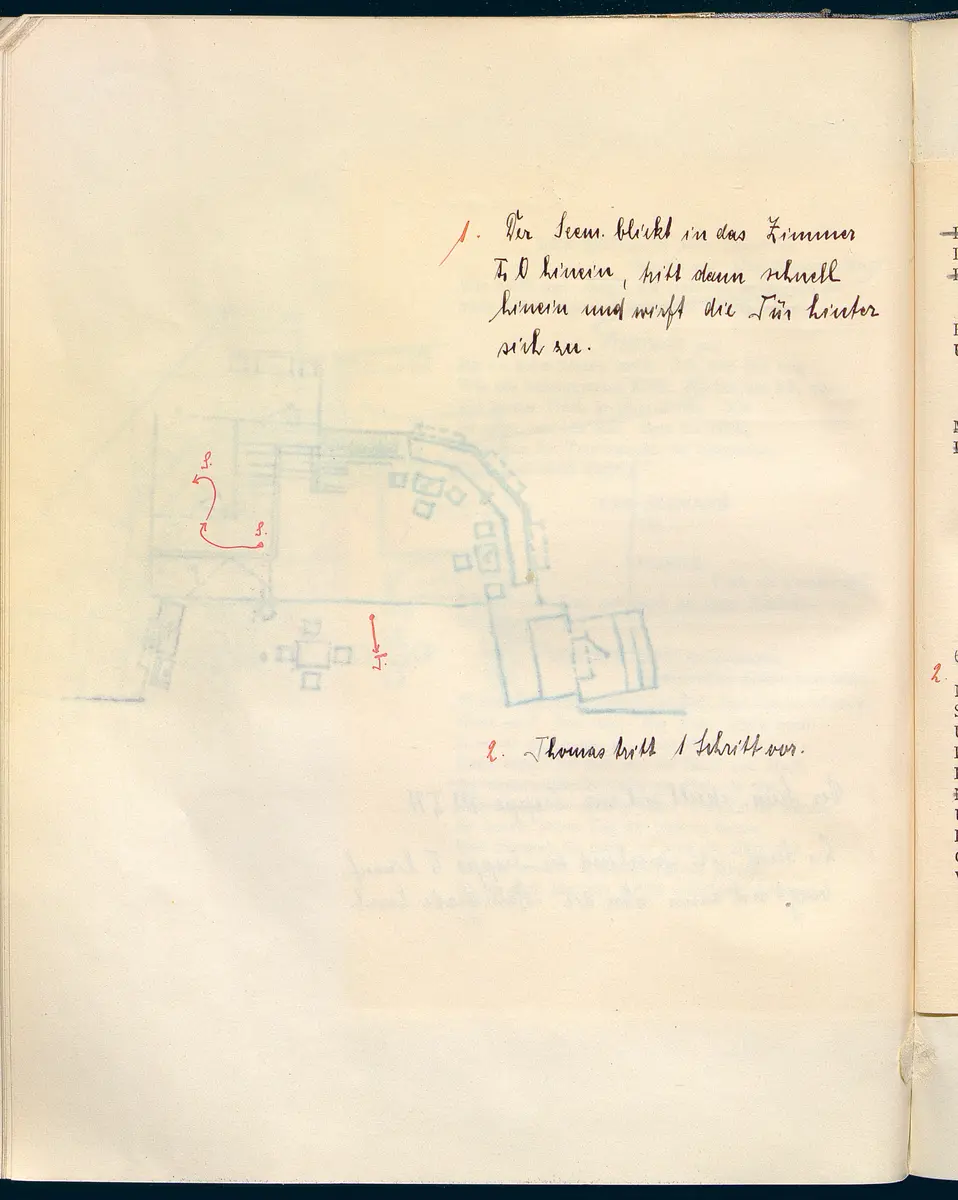 1. Der Seem. blickt in das Zimmer
hinein, tritt dann schnell
hinein und wirft die Tür hinter
sich zu.
S.
S.
T.
2. Thomas tritt 1 Schritt vor.
2.